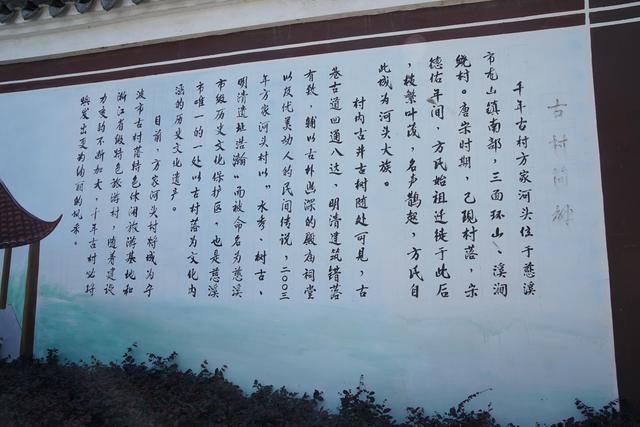 古村简介
千年古村方家河头位于慈溪
市龙山镇南部，三面环山、溪涧
绕村。唐宋时期，已现村落，宋
德佑年间，方氏始祖迁徙于此后
，枝繁叶茂，名声鹊起，方氏自
此成为河头大族。
村内古井古树随处可见，古
巷古道四通八达，明清建筑错落
有致，辅以古朴幽深的殿庙祠堂
以及优美动人的民间传说，二〇〇三
年方家河头村以”水秀、树古、
明清遗址浩瀚“而被命名为慈溪
市级历史文化保护区，也是慈溪
市唯一的一处以古村落为文化内
涵的历史文化遗产。
目前，方家河头村将成为宁
波市古村落特色休闲旅游基地和
浙江省级特色旅游村，随着建设
力度的不断加大，千年古村必将
焕发出更为绚丽的风采。